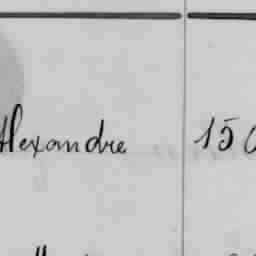 Alexandre 15